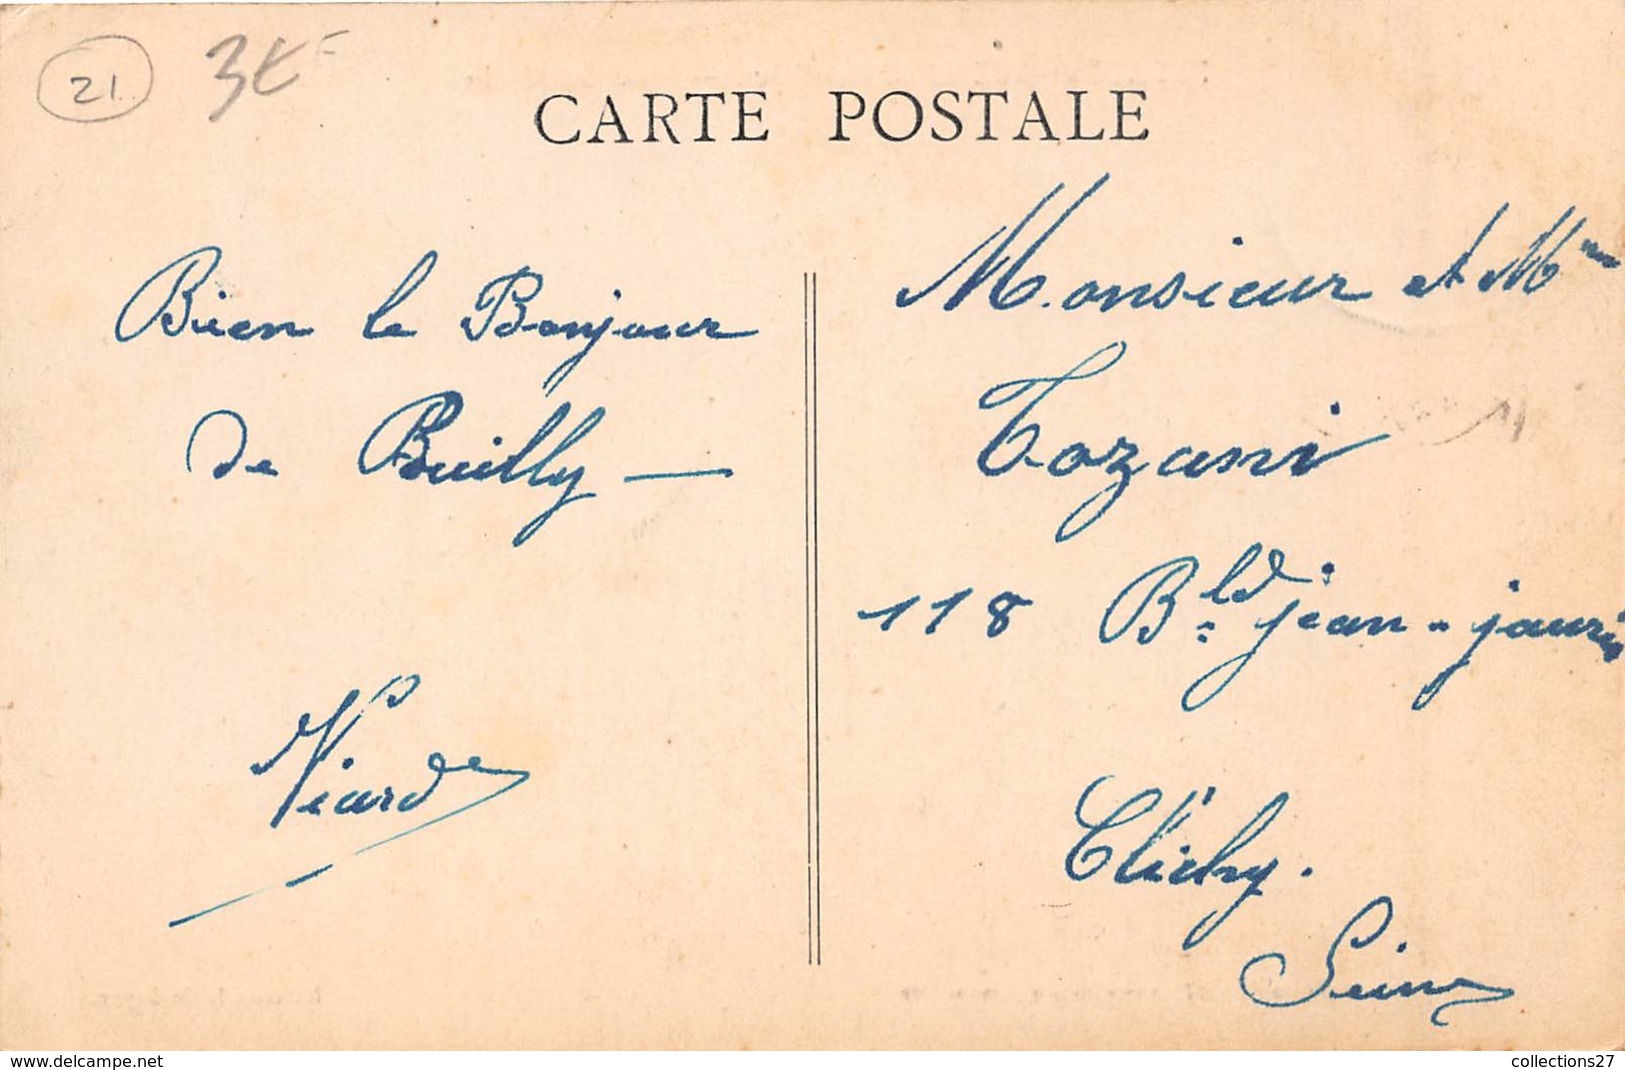 21
3€
CARTE POSTALE
Bien le Bonjour
de Pouilly —
Viard
Monsieur et Mme
Tozani
118 Bld jean-jaurès
Clichy.
Seine
www.delcampe.net
collections27